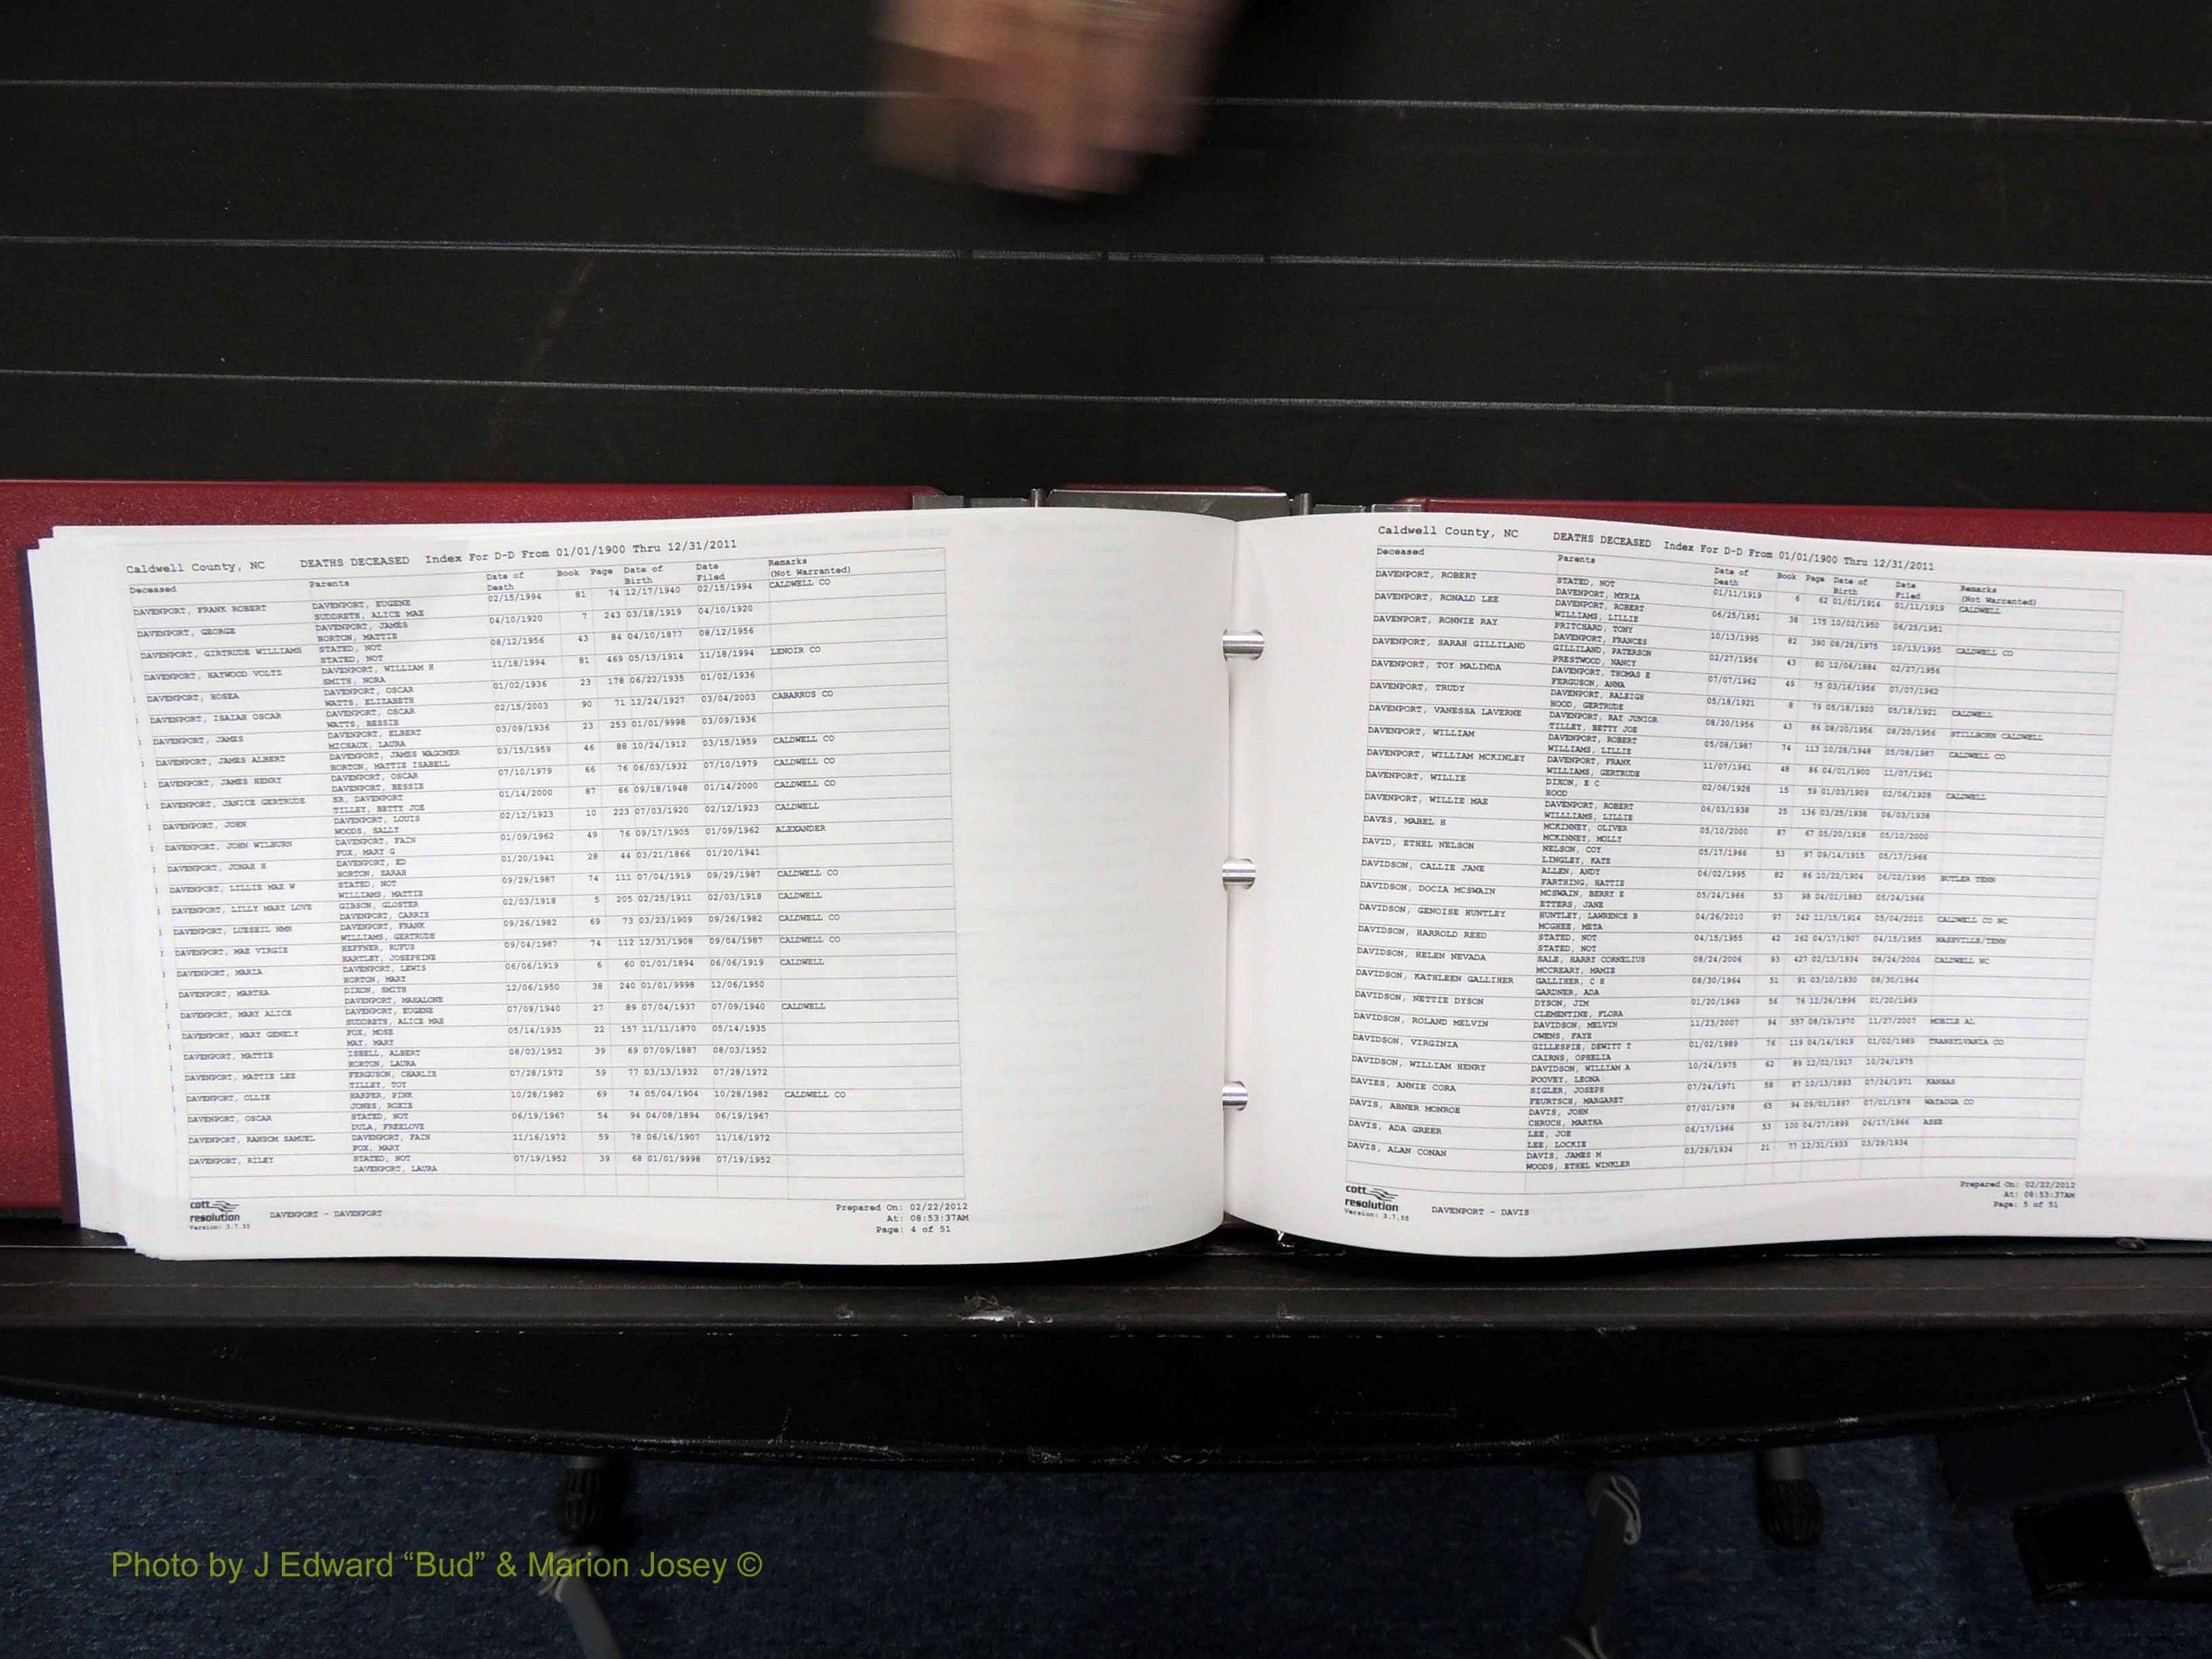 Caldwell County, NC DEATHS DECEASED Index For D-D From 01/01/1900 Thru 12/31/2011
Deceased Parents Date of Death Book Page Date of Birth Date Filed Remarks (Not Warranted)
DAVENPORT, FRANK ROBERT DAVENPORT, EUGENE 02/15/1994 81 74 12/17/1940 02/15/1994 CALDWELL CO
SUDDRETH, ALICE MAE
DAVENPORT, GEORGE DAVENPORT, JAMES 04/10/1920 7 243 03/18/1919 04/10/1920
HORTON, MATTIE
DAVENPORT, GIRTRUDE WILLIAMS STATED, NOT 08/12/1956 43 84 04/10/1877 08/12/1956
STATED, NOT
DAVENPORT, HAYWOOD VOLTZ DAVENPORT, WILLIAM H 11/18/1994 81 469 05/13/1914 11/18/1994 LENOIR CO
SMITH, NORA
DAVENPORT, HOSEA DAVENPORT, OSCAR 01/02/1936 23 178 06/22/1935 01/02/1936
WATTS, ELIZABETH
DAVENPORT, ISAIAH OSCAR DAVENPORT, OSCAR 02/15/2003 90 71 12/24/1927 03/04/2003 CABARRUS CO
WATTS, BESSIE
DAVENPORT, JAMES DAVENPORT, ELBERT 03/09/1936 23 253 01/01/9998 03/09/1936
MICHAUX, LAURA
DAVENPORT, JAMES ALBERT DAVENPORT, JAMES WAGONER 03/15/1959 46 88 10/24/1912 03/15/1959 CALDWELL CO
HORTON, MATTIE ISABELL
DAVENPORT, JAMES HENRY DAVENPORT, OSCAR 07/10/1979 66 76 06/03/1932 07/10/1979 CALDWELL CO
DAVENPORT, BESSIE
DAVENPORT, JANICE GERTRUDE SR, DAVENPORT 01/14/2000 87 66 09/18/1948 01/14/2000 CALDWELL CO
TILLEY, BETTY JOE
DAVENPORT, JOHN DAVENPORT, LOUIS 02/12/1923 10 223 07/03/1920 02/12/1923 CALDWELL
WOODS, SALLY
DAVENPORT, JOHN WILBURN DAVENPORT, FAIN 01/09/1962 49 76 09/17/1905 01/09/1962 ALEXANDER
FOX, MARY G
DAVENPORT, JONAH H DAVENPORT, ED 01/20/1941 28 44 03/21/1866 01/20/1941
HORTON, SARAH
DAVENPORT, LILLIE MAE W STATED, NOT 09/29/1987 74 111 07/04/1919 09/29/1987 CALDWELL CO
WILLIAMS, MATTIE
DAVENPORT, LILLY MARY LOVE GIBSON, GLOSTER 02/03/1918 5 205 02/25/1911 02/03/1918 CALDWELL
DAVENPORT, CARRIE
DAVENPORT, LUESEIL NMN DAVENPORT, FRANK 09/26/1982 69 73 03/23/1909 09/26/1982 CALDWELL CO
WILLIAMS, GERTRUDE
DAVENPORT, MAE VIRGIE HEFFNER, RUFUS 09/04/1987 74 112 12/31/1908 09/04/1987 CALDWELL CO
HARTLEY, JOSEPHINE
DAVENPORT, MARIA DAVENPORT, LEWIS 06/06/1919 6 60 01/01/1894 06/06/1919 CALDWELL
HORTON, MARY
DAVENPORT, MARTHA DIXON, SMITH 12/06/1950 38 240 01/01/9998 12/06/1950
DAVENPORT, MAHALONE
DAVENPORT, MARY ALICE DAVENPORT, EUGENE 07/09/1940 27 89 07/04/1937 07/09/1940 CALDWELL
SUDDRETH, ALICE MAE
DAVENPORT, MARY GENELY FOX, MOSE 05/14/1935 22 157 11/11/1870 05/14/1935
MAY, MARY
DAVENPORT, MATTIE ISBELL, ALBERT 08/03/1952 39 69 07/09/1887 08/03/1952
HORTON, LAURA
DAVENPORT, MATTIE LEE FERGUSON, CHARLIE 07/28/1972 59 77 03/13/1932 07/28/1972
TILLEY, TOY
DAVENPORT, OLLIE HARPER, PINK 10/28/1982 69 74 05/04/1904 10/28/1982 CALDWELL CO
JONES, ROXIE
DAVENPORT, OSCAR STATED, NOT 06/19/1967 54 94 04/08/1894 06/19/1967
DULA, FREELOVE
DAVENPORT, RANSOM SAMUEL DAVENPORT, FAIN 11/16/1972 59 78 06/16/1907 11/16/1972
FOX, MARY
DAVENPORT, RILEY STATED, NOT 07/19/1952 39 68 01/01/9998 07/19/1952
DAVENPORT, LAURA
cott
resolution
Version: 3.7.55
DAVENPORT - DAVENPORT
Prepared On: 02/22/2012
At: 08:53:37AM
Page: 4 of 51
Caldwell County, NC DEATHS DECEASED Index For D-D From 01/01/1900 Thru 12/31/2011
Deceased Parents Date of Death Book Page Date of Birth Date Filed Remarks (Not Warranted)
DAVENPORT, ROBERT STATED, NOT 01/11/1919 6 62 01/01/1914 01/11/1919 CALDWELL
DAVENPORT, MYRIA
DAVENPORT, RONALD LEE DAVENPORT, ROBERT 06/25/1951 38 175 10/02/1950 06/25/1951
WILLIAMS, LILLIE
DAVENPORT, RONNIE RAY PRITCHARD, TONY 10/13/1995 82 390 08/28/1975 10/13/1995 CALDWELL CO
DAVENPORT, FRANCES
DAVENPORT, SARAH GILLILAND GILLILAND, PATERSON 02/27/1956 43 80 12/06/1884 02/27/1956
PRESTWOOD, NANCY
DAVENPORT, TOY MALINDA DAVENPORT, THOMAS E 07/07/1962 49 75 03/16/1956 07/07/1962
FERGUSON, ANNA
DAVENPORT, TRUDY DAVENPORT, RALEIGH 05/18/1921 8 79 05/18/1920 05/18/1921 CALDWELL
HOOD, GERTRUDE
DAVENPORT, VANESSA LAVERNE DAVENPORT, RAY JUNIOR 08/20/1956 43 86 08/20/1956 08/20/1956 STILLBORN CALDWELL
TILLEY, BETTY JOE
DAVENPORT, WILLIAM DAVENPORT, ROBERT 05/08/1987 74 113 10/28/1948 05/08/1987 CALDWELL CO
WILLIAMS, LILLIE
DAVENPORT, WILLIAM MCKINLEY DAVENPORT, FRANK 11/07/1961 48 86 04/01/1900 11/07/1961
WILLIAMS, GERTRUDE
DAVENPORT, WILLIE DIXON, E C 02/06/1928 15 59 01/03/1909 02/06/1928 CALDWELL
HOOD
DAVENPORT, WILLIE MAE DAVENPORT, ROBERT 06/03/1938 25 136 03/25/1938 06/03/1938
WILLLIAMS, LILLIE
DAVES, MABEL H MCKINNEY, OLIVER 05/10/2000 87 67 05/20/1918 05/10/2000
MCKINNEY, MOLLY
DAVID, ETHEL NELSON NELSON, COY 05/17/1966 53 97 09/14/1915 05/17/1966
LINGLEY, KATE
DAVIDSON, CALLIE JANE ALLEN, ANDY 06/02/1995 82 86 10/22/1904 06/02/1995 BUTLER TENN
FARTHING, HATTIE
DAVIDSON, DOCIA MCSWAIN MCSWAIN, BERRY E 05/24/1966 53 98 04/01/1883 05/24/1966
ETTERS, JANE
DAVIDSON, GENOISE HUNTLEY HUNTLEY, LAWRENCE B 04/26/2010 97 242 11/15/1914 05/04/2010 CALDWELL CO NC
MCGHEE, META
DAVIDSON, HARROLD REED STATED, NOT 04/15/1955 42 262 04/17/1907 04/15/1955 NASHVILLE/TENN
STATED, NOT
DAVIDSON, HELEN NEVADA SALE, HARRY CORNELIUS 08/24/2006 93 427 02/13/1934 08/24/2006 CALDWELL NC
MCCREARY, MAMIE
DAVIDSON, KATHLEEN GALLIHER GALLIHER, C H 08/30/1964 51 91 03/10/1930 08/30/1964
GARDNER, ADA
DAVIDSON, NETTIE DYSON DYSON, JIM 01/20/1969 56 76 12/26/1896 01/20/1969
CLEMENTINE, FLORA
DAVIDSON, ROLAND MELVIN DAVIDSON, MELVIN 11/23/2007 94 557 08/19/1970 11/27/2007 MOBILE AL
OWENS, FAYE
DAVIDSON, VIRGINIA GILLESPIE, DEWITT T 01/02/1989 76 119 04/14/1919 01/02/1989 TRANSYLVANIA CO
CAIRNS, OPHELIA
DAVIDSON, WILLIAM HENRY DAVIDSON, WILLIAM A 10/24/1975 62 89 12/02/1917 10/24/1975
POOVEY, LEONA
DAVIES, ANNIE CORA SIGLER, JOSEPH 07/24/1971 58 87 10/13/1893 07/24/1971 KANSAS
FEURTSCH, MARGARET
DAVIS, ABNER MONROE DAVIS, JOHN 07/01/1978 65 94 09/01/1897 07/01/1978 WATAUGA CO
CHRUCH, MARTHA
DAVIS, ADA GREER LEE, JOE 06/17/1966 53 100 04/27/1899 06/17/1966 ASHE
LEE, LOCKIE
DAVIS, ALAN CONAN DAVIS, JAMES M 03/29/1934 21 77 12/31/1933 03/29/1934
WOODS, ETHEL WINKLER
cott
resolution
Version: 3.7.55
DAVENPORT - DAVIS
Prepared On: 02/22/2012
At: 08:53:37AM
Page: 5 of 51
Photo by J Edward “Bud” & Marion Josey ©